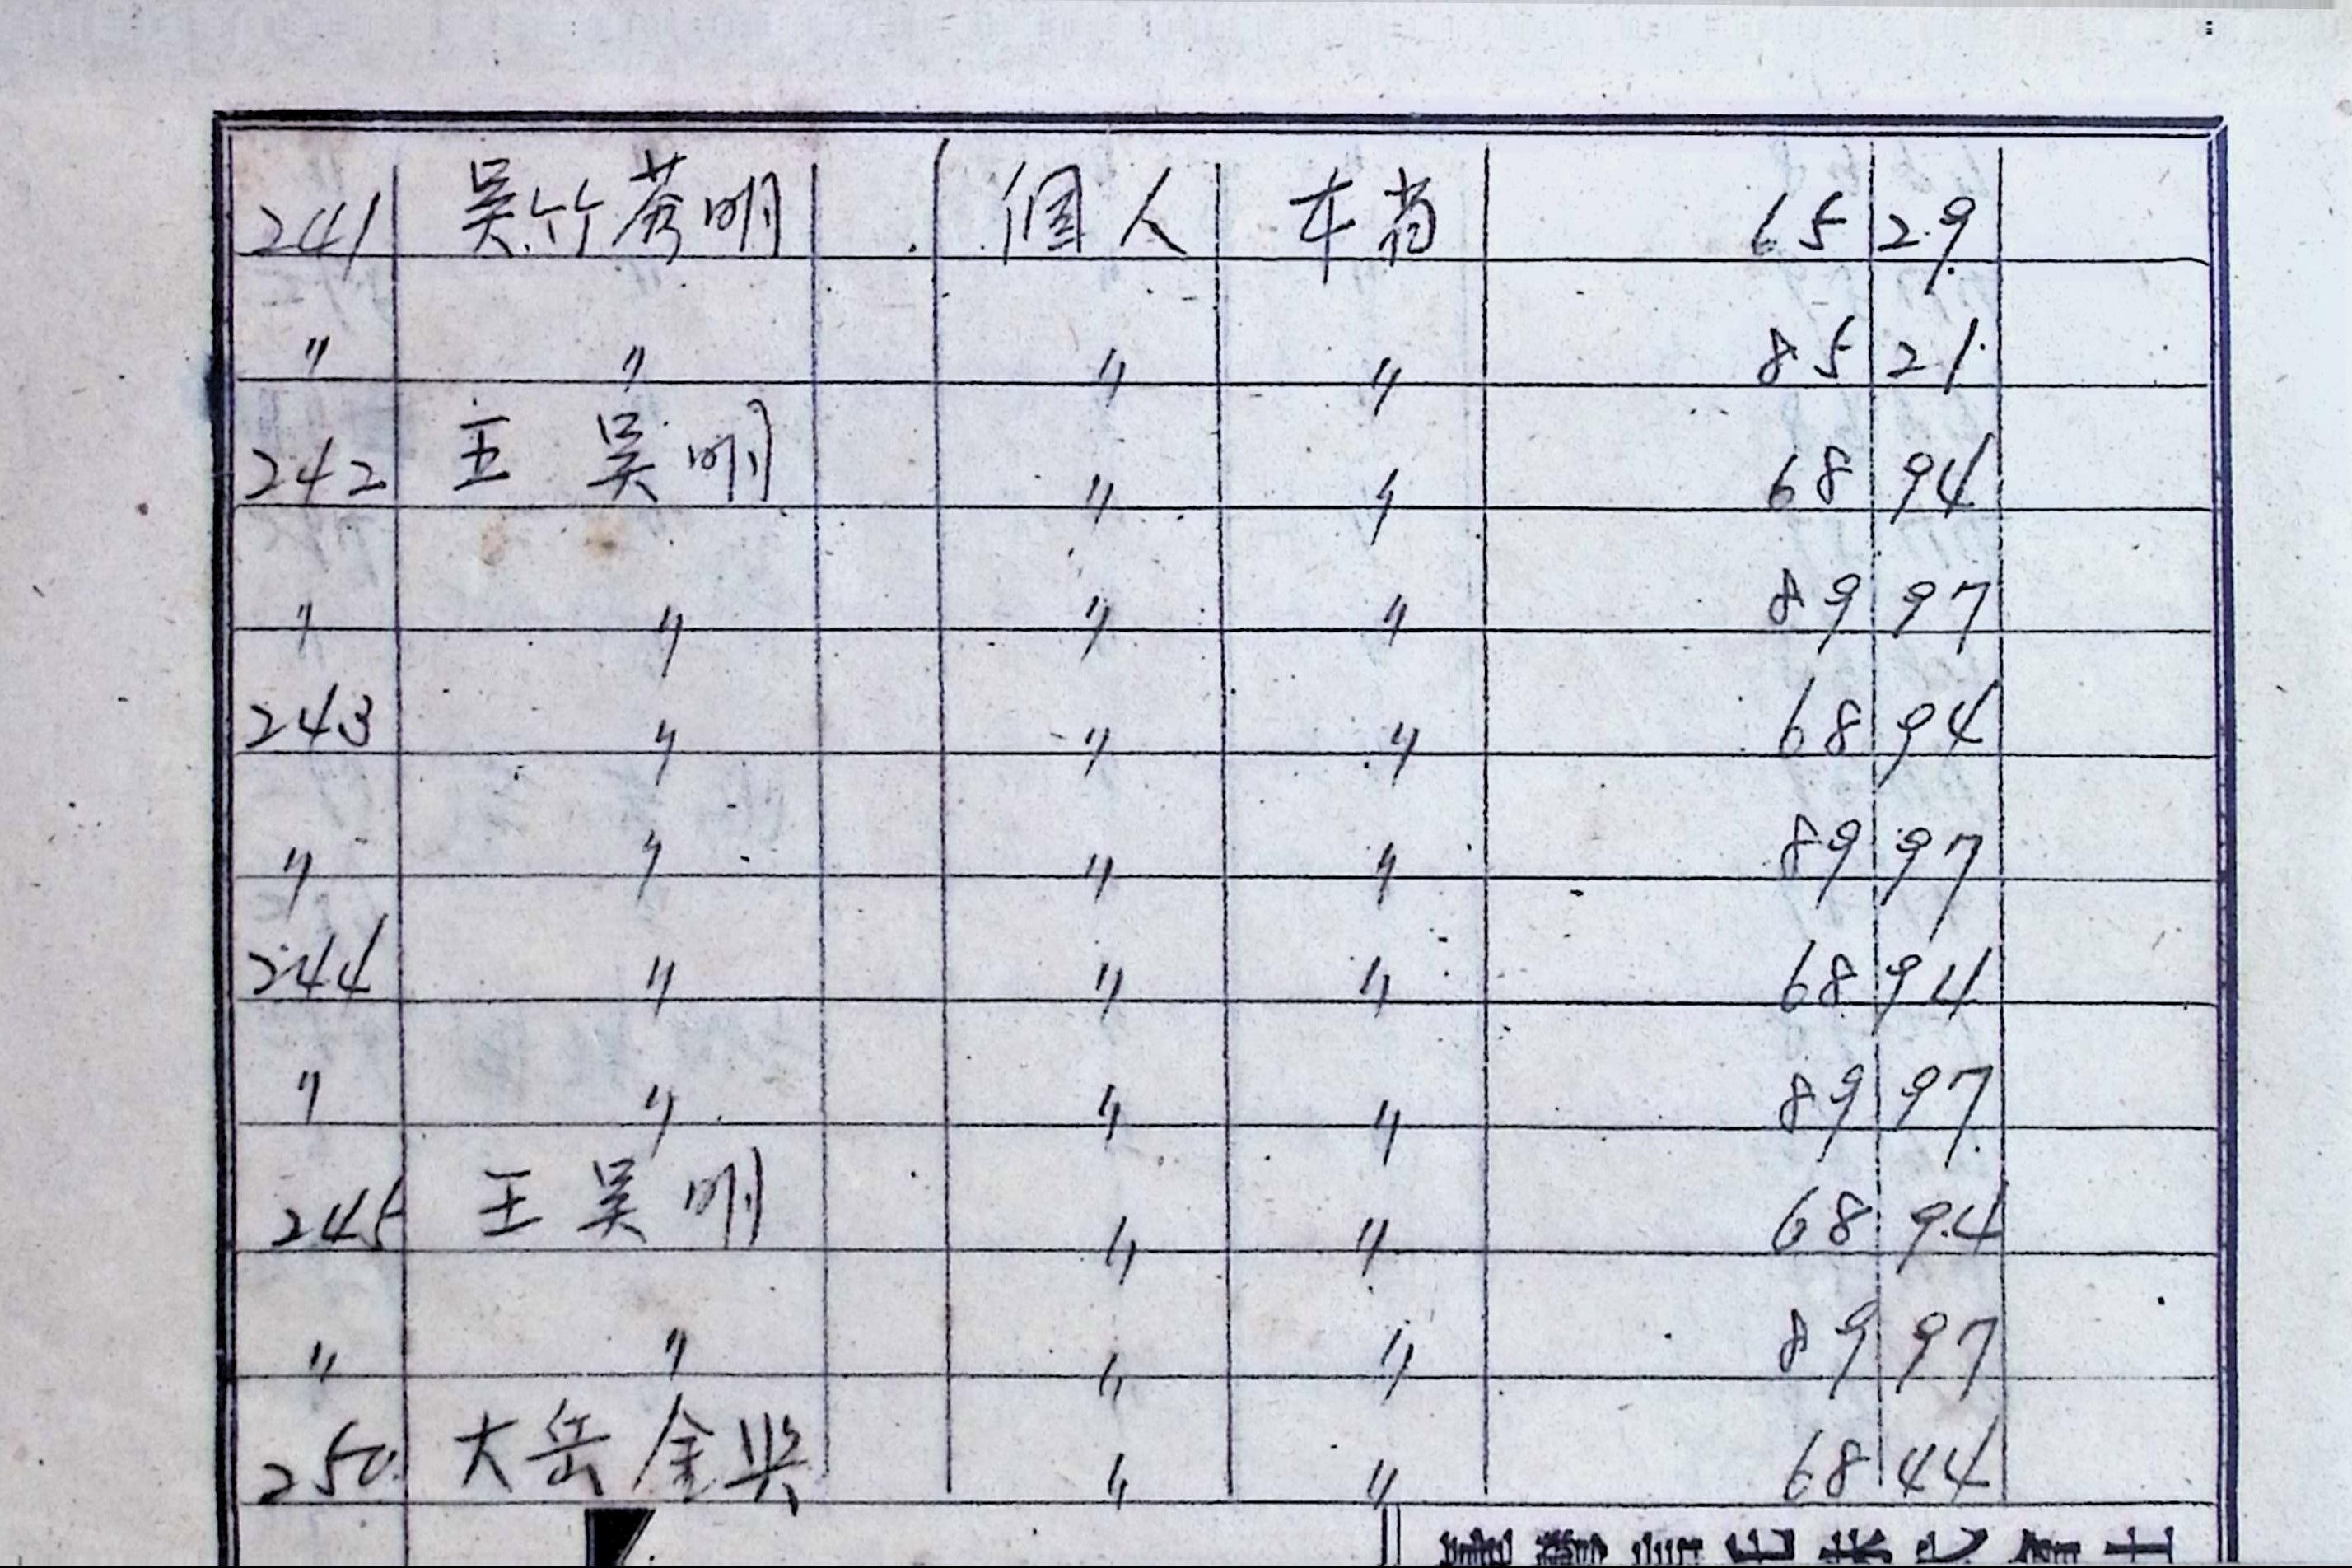 241 吴竹秀明 個人 本省 65 29
〃 〃 〃 〃 85 21
242 王 吴 明 〃 〃 68 94
〃 〃 〃 〃 89 97
243 〃 〃 〃 68 94
〃 〃 〃 〃 89 97
244 〃 〃 〃 68 94
〃 〃 〃 〃 89 97
245 王 吴 明 〃 〃 68 94
〃 〃 〃 〃 89 97
250 大岳金 〃 〃 68 44